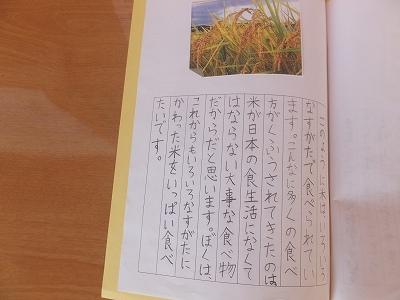 このように米は、いろいろ
なすがたで食べられてい
ます。こんなに多くの食べ
方がくふうされてきたのは、
米が日本の食生活になくて
はならない大事な食べ物
だからだと思います。ぼくは、
これからもいろいろなすがたに
かわった米をいっぱい食べ
たいです。